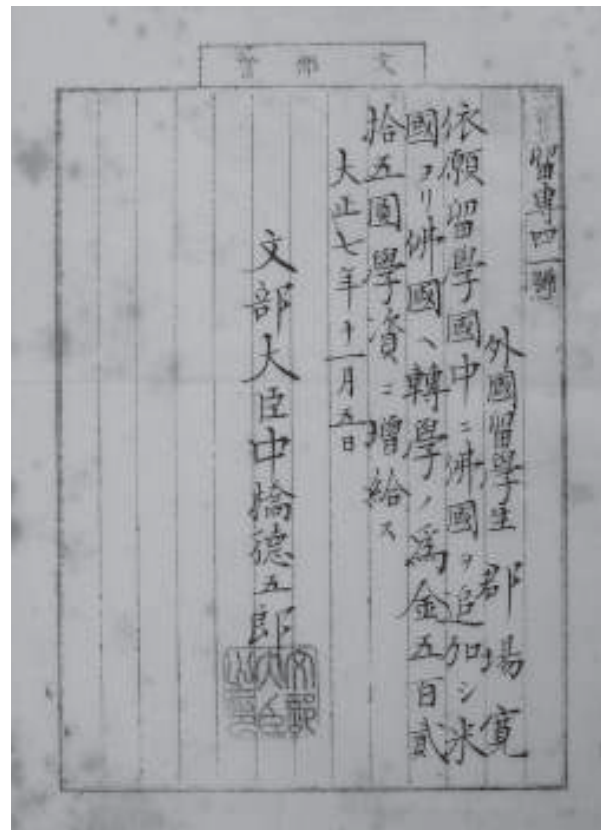 文部省
留専四一號
外國留學生 郡場寛
依願留學國中ニ佛國ヲ追加シ米
國ヨリ佛國ヘ轉學ノ為金五百貳
拾五圓學資ニ増給ス
大正七年十一月五日
文部大臣中橋德五郎
文部大臣之章